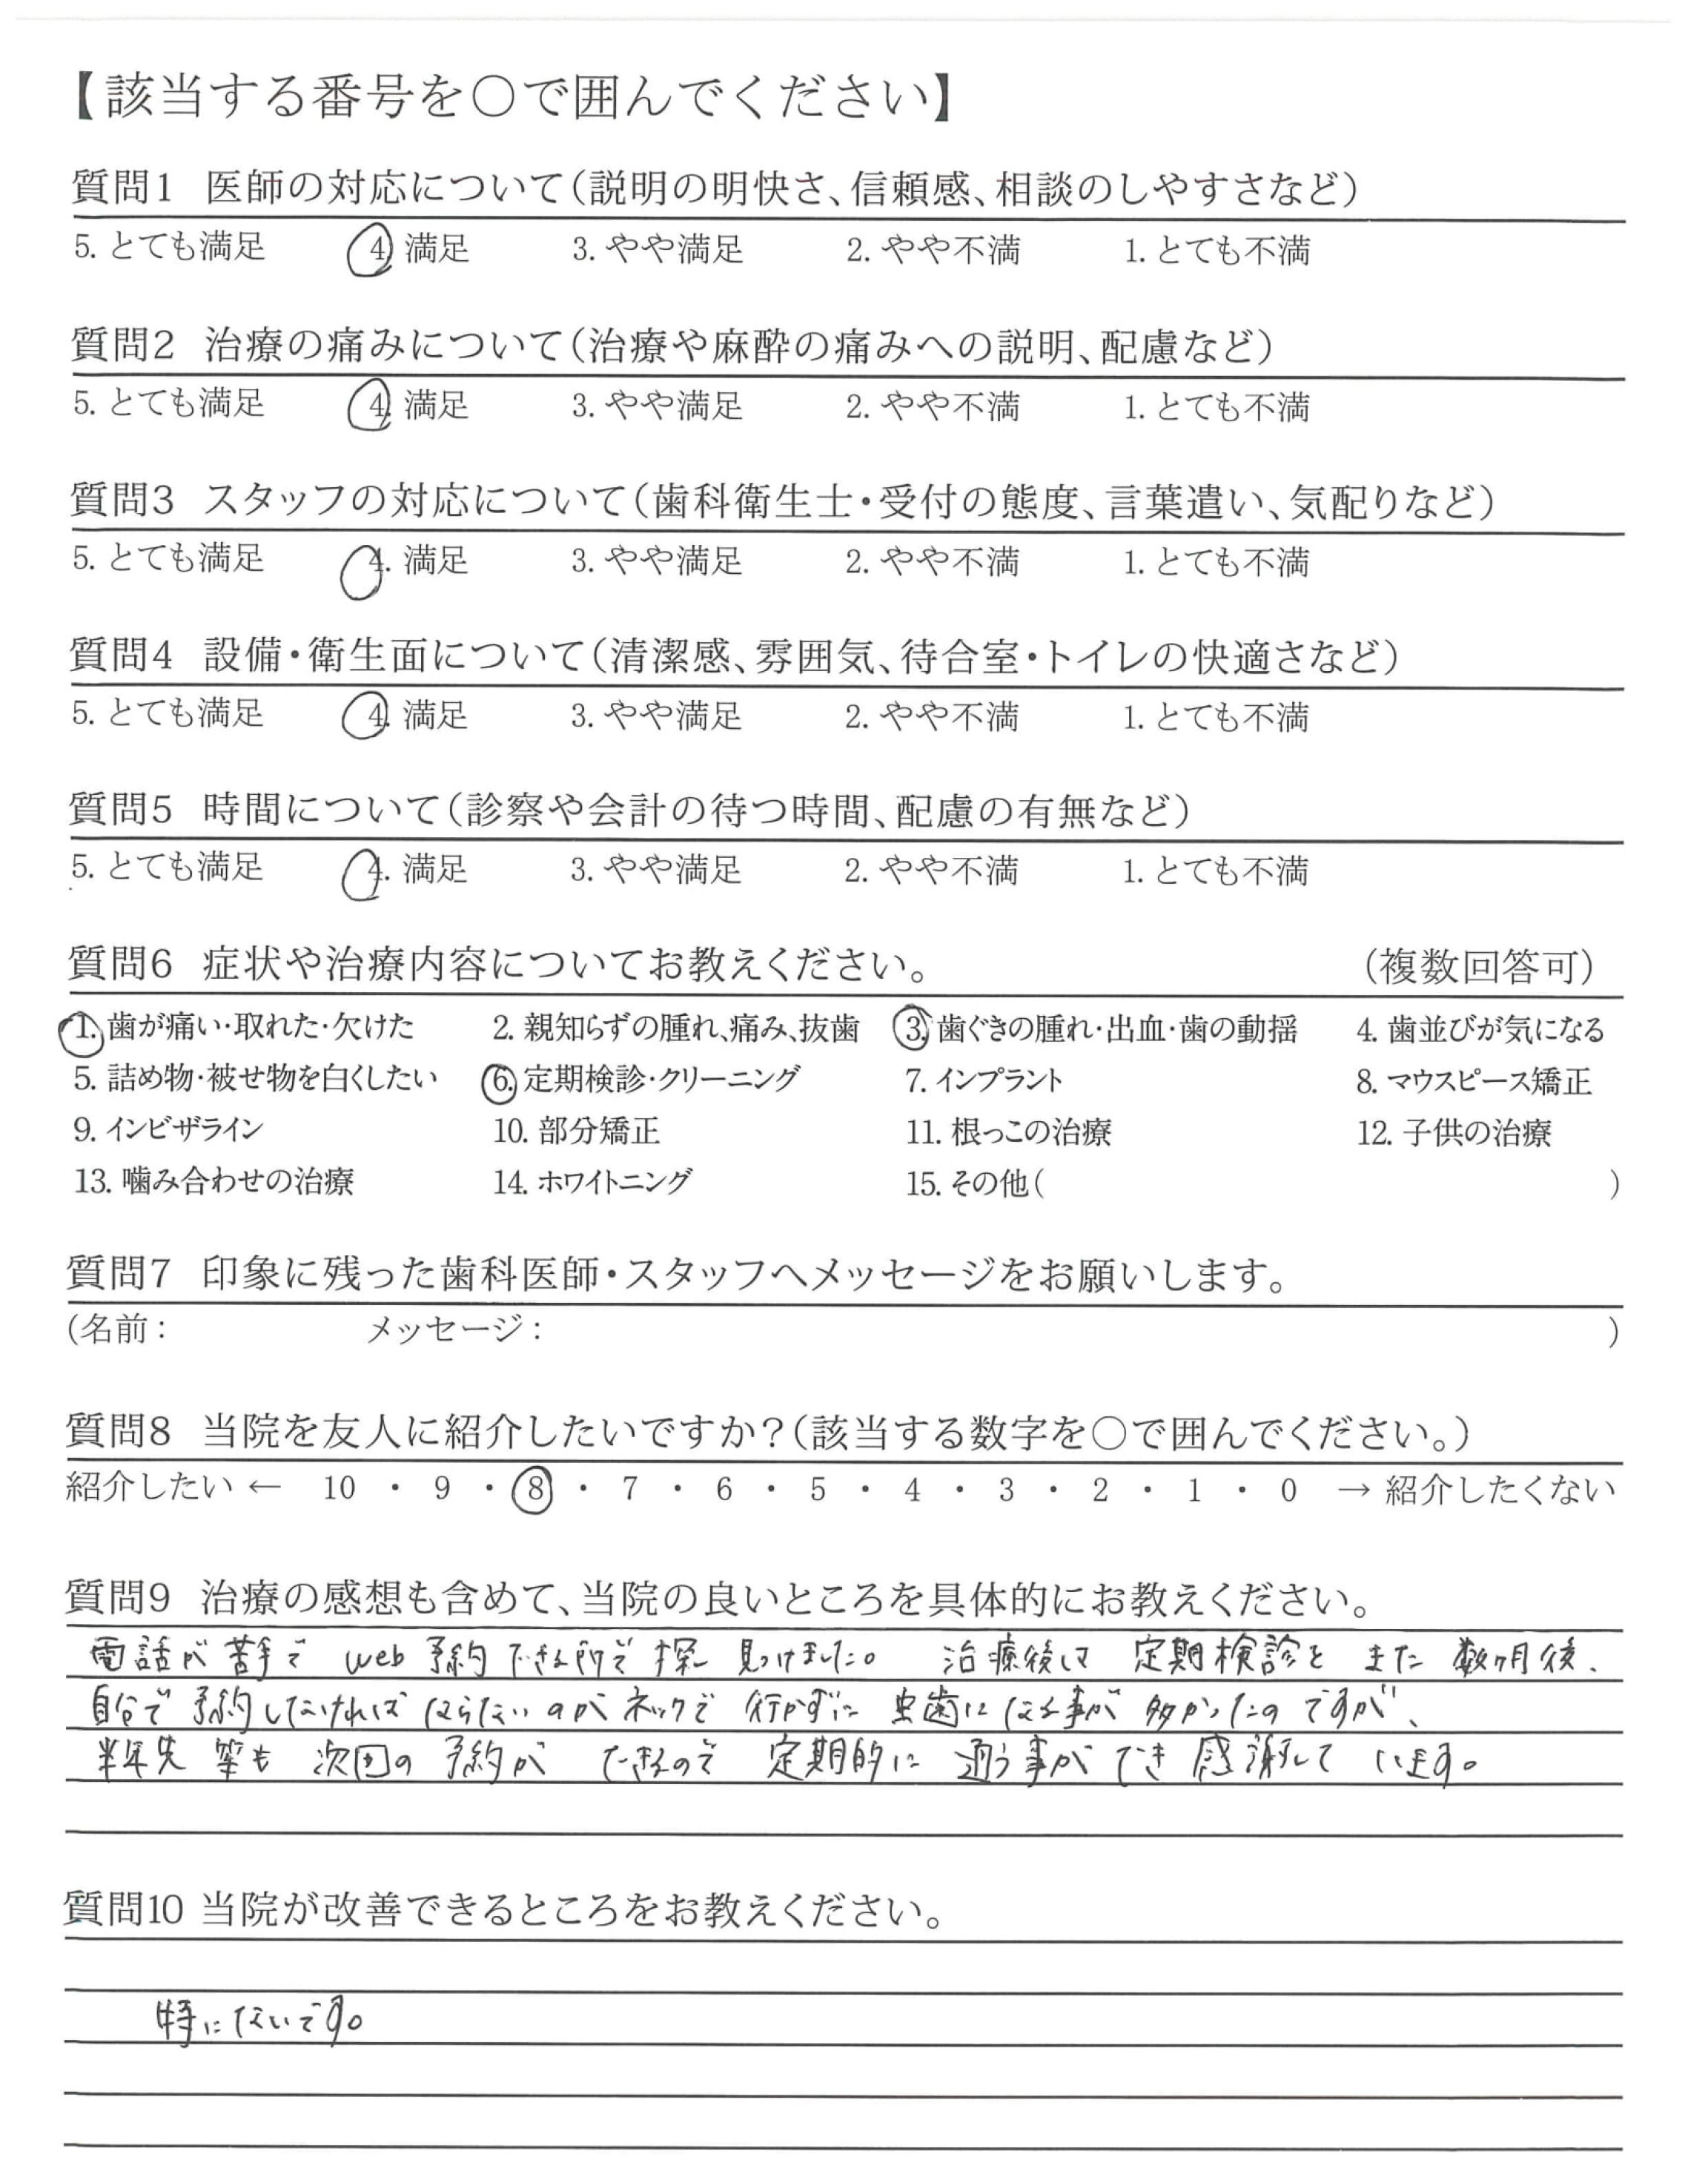 【該当する番号を〇で囲んでください】
質問1 医師の対応について（説明の明快さ、信頼感、相談のしやすさなど）
5. とても満足 4. 満足 3. やや満足 2. やや不満 1. とても不満
質問2 治療の痛みについて（治療や麻酔の痛みへの説明、配慮など）
5. とても満足 4. 満足 3. やや満足 2. やや不満 1. とても不満
質問3 スタッフの対応について（歯科衛生士・受付の態度、言葉遣い、気配りなど）
5. とても満足 4. 満足 3. やや満足 2. やや不満 1. とても不満
質問4 設備・衛生面について（清潔感、雰囲気、待合室・トイレの快適さなど）
5. とても満足 4. 満足 3. やや満足 2. やや不満 1. とても不満
質問5 時間について（診察や会計の待つ時間、配慮の有無など）
5. とても満足 4. 満足 3. やや満足 2. やや不満 1. とても不満
質問6 症状や治療内容についてお教えください。 （複数回答可）
1. 歯が痛い・取れた・欠けた 2. 親知らずの腫れ、痛み、抜歯 3. 歯ぐきの腫れ・出血・歯の動揺 4. 歯並びが気になる
5. 詰め物・被せ物を白くしたい 6. 定期検診・クリーニング 7. インプラント 8. マウスピース矯正
9. インビザライン 10. 部分矯正 11. 根っこの治療 12. 子供の治療
13. 噛み合わせの治療 14. ホワイトニング 15. その他（ ）
質問7 印象に残った歯科医師・スタッフへメッセージをお願いします。
（名前： メッセージ： ）
質問8 当院を友人に紹介したいですか？（該当する数字を〇で囲んでください。）
紹介したい ← 10 ・ 9 ・ 8 ・ 7 ・ 6 ・ 5 ・ 4 ・ 3 ・ 2 ・ 1 ・ 0 → 紹介したくない
質問9 治療の感想も含めて、当院の良いところを具体的にお教えください。
電話が苦手で web予約できる所で探し見つけました。 治療後は 定期検診を また 数ヶ月後、
自分で予約しなければ ならないのが ネックで 行かずに 虫歯になる事が 多かったのですが、
半年先 等も 次回の 予約が できるので 定期的に 通う事が でき 感謝して います。
質問10 当院が改善できるところをお教えください。
特にないです。